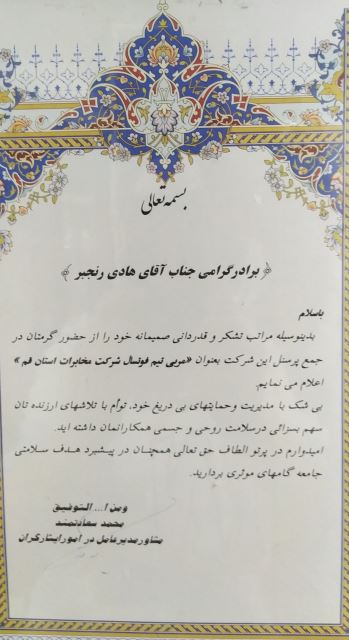 بسمه تعالی
﴿ برادرگرامی جناب آقای هادی رنجبر ﴾
باسلام
بدینوسیله مراتب تشکر و قدردانی صمیمانه خود را از حضور گرمتان در
جمع پرسنل این شرکت بعنوان «مربی تیم فوتسال شرکت مخابرات استان قم »
اعلام می نمایم.
بی شک با مدیریت وحمایتهای بی دریغ خود، توأم با تلاشهای ارزنده تان
سهم بسزائی درسلامت روحی و جسمی همکارانمان داشته اید.
امیدوارم در پرتو الطاف حق تعالی همچنان در پیشبرد هدف سلامتی
جامعه گامهای موثری بردارید.
ومن ا... التوفیق
محمد سعادتمند
مشاورمدیرعامل در امورایثارگران